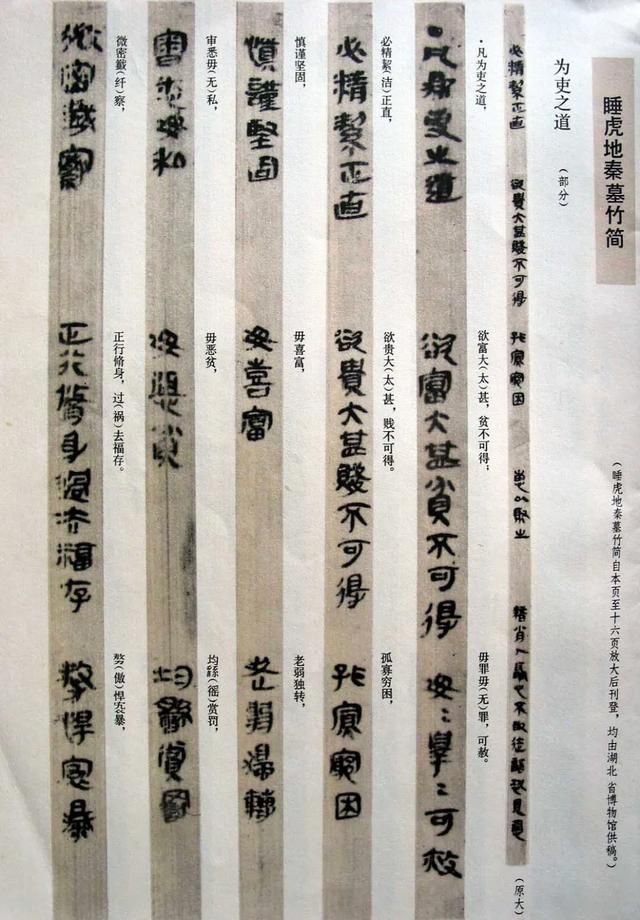 睡虎地秦墓竹简
(睡虎地秦墓竹简自本页至十六页放大后刊登，均由湖北省博物馆供稿。)
为吏之道 (部分)
必精絜正直 欲貴大甚賤不可得 孤寡窮困
(原大)
·凡为吏之道， 欲富大(太)甚，贫不可得； 毋罪毋(无)罪，可赦。
·凡為吏之道 欲富大甚貧不可得 毋﹦罪﹦可赦
必精絜(洁)正直， 欲贵大(太)甚，贱不可得。 孤寡穷困，
必精絜正直 欲貴大甚賤不可得 孤寡窮困
慎谨坚固， 毋喜富， 老弱独转，
慎謹堅固 毋喜富 老弱獨轉
审悉毋(无)私， 毋恶贫， 均繇(徭)赏罚，
審悉毋私 毋惡貧 均繇賞罰
微密韱(纤)察， 正行脩身，过(祸)去福存。 (傲)悍暴，
微密韱察 正行脩身過去福存 悍暴